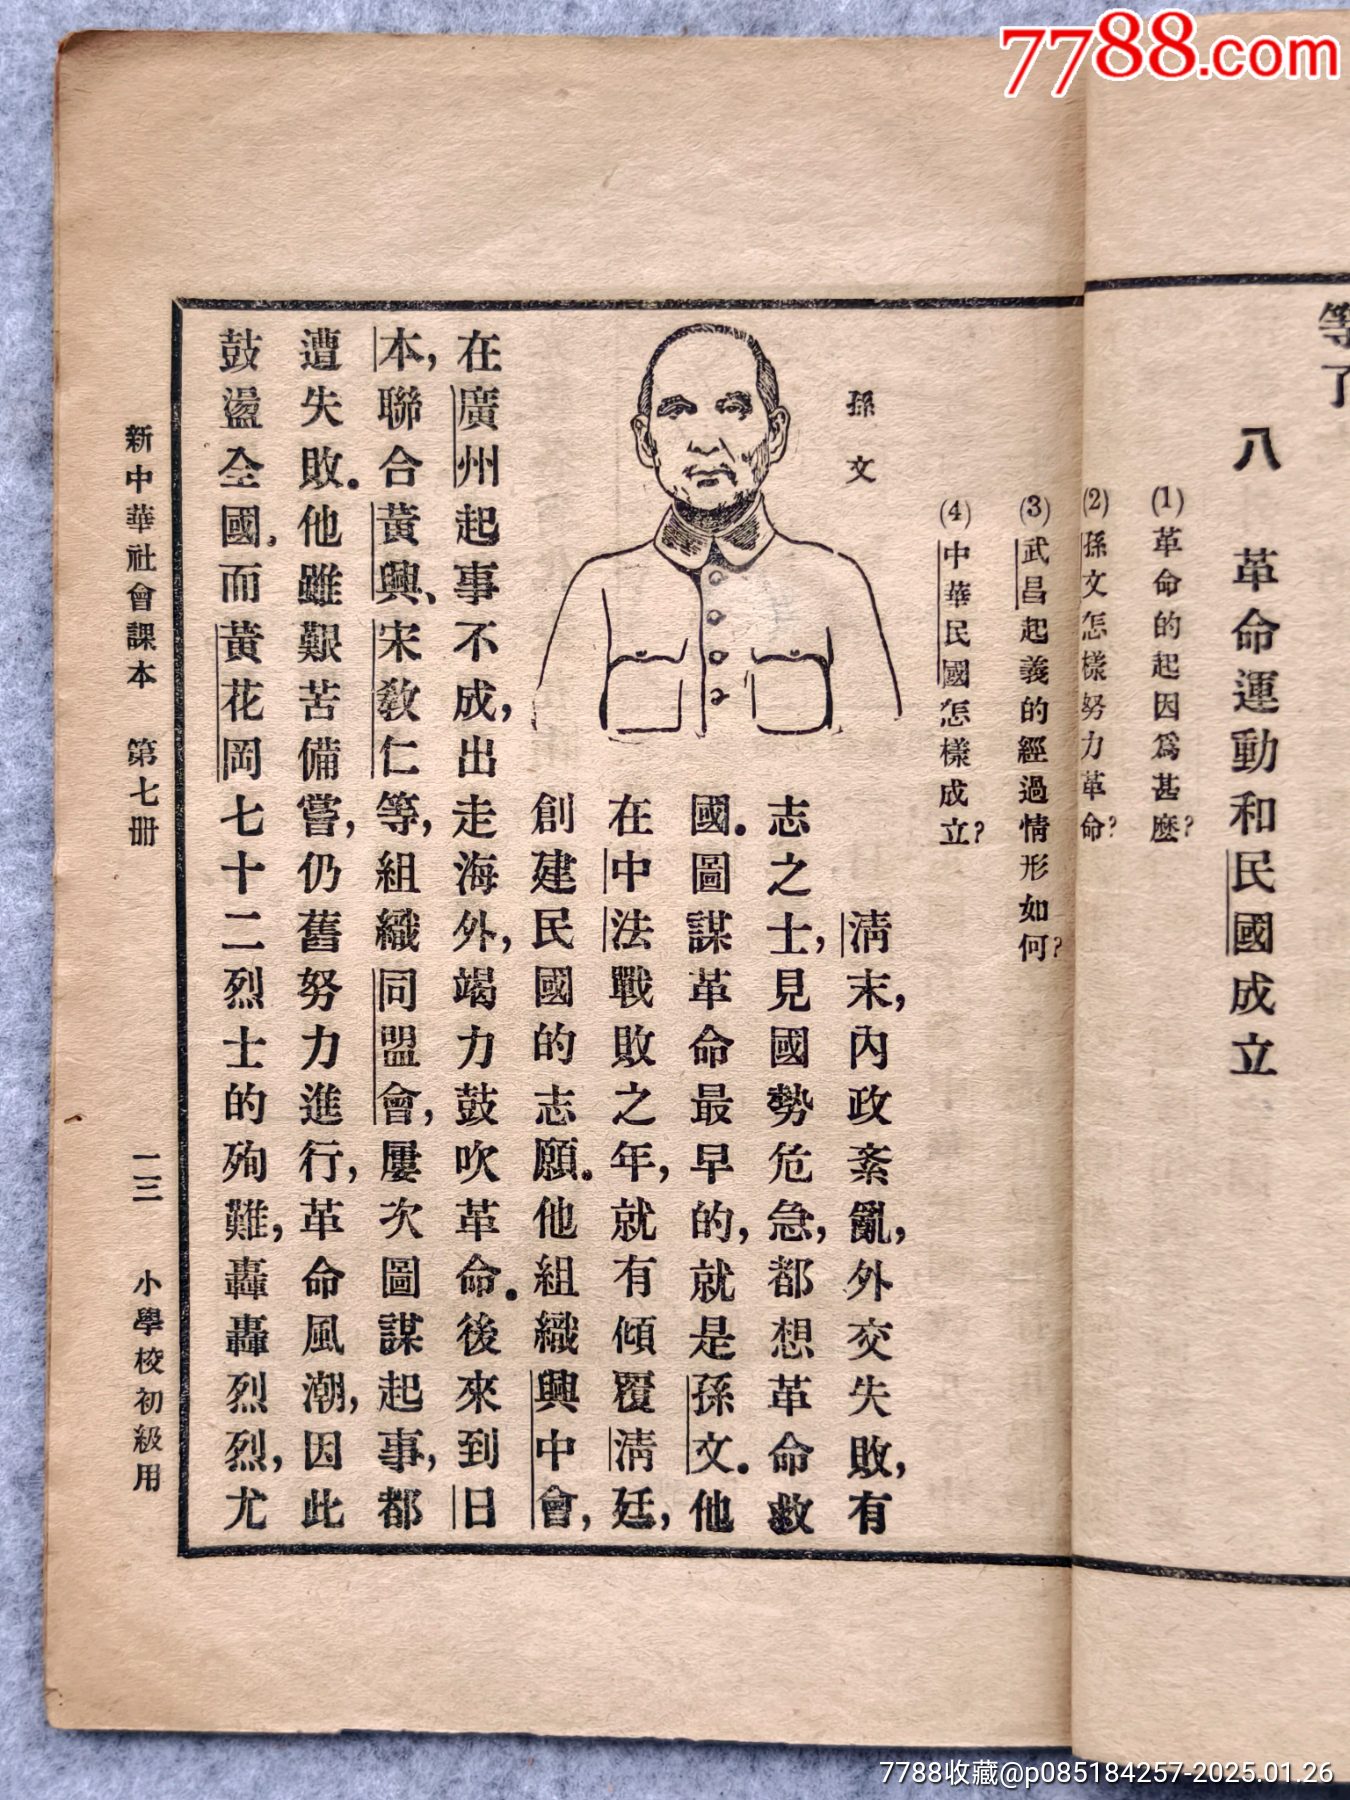 7788.com
等了
八 革命運動和民國成立
(1)革命的起因爲甚麼?
(2)孫文怎樣努力革命?
(3)武昌起義的經過情形如何?
(4)中華民國怎樣成立?
孫文
清末,內政紊亂,外交失敗,有
志之士,見國勢危急,都想革命救
國.圖謀革命最早的,就是孫文.他
在中法戰敗之年,就有傾覆清廷,
創建民國的志願.他組織興中會,
在廣州起事不成,出走海外,竭力鼓吹革命.後來到日
本,聯合黃興、宋敎仁等,組織同盟會,屢次圖謀起事,都
遭失敗.他雖艱苦備嘗,仍舊努力進行,革命風潮,因此
鼓盪全國.而黃花岡七十二烈士的殉難,轟轟烈烈,尤
新中華社會課本 第七册 一三 小學校初級用
7788收藏@p085184257-2025.01.26